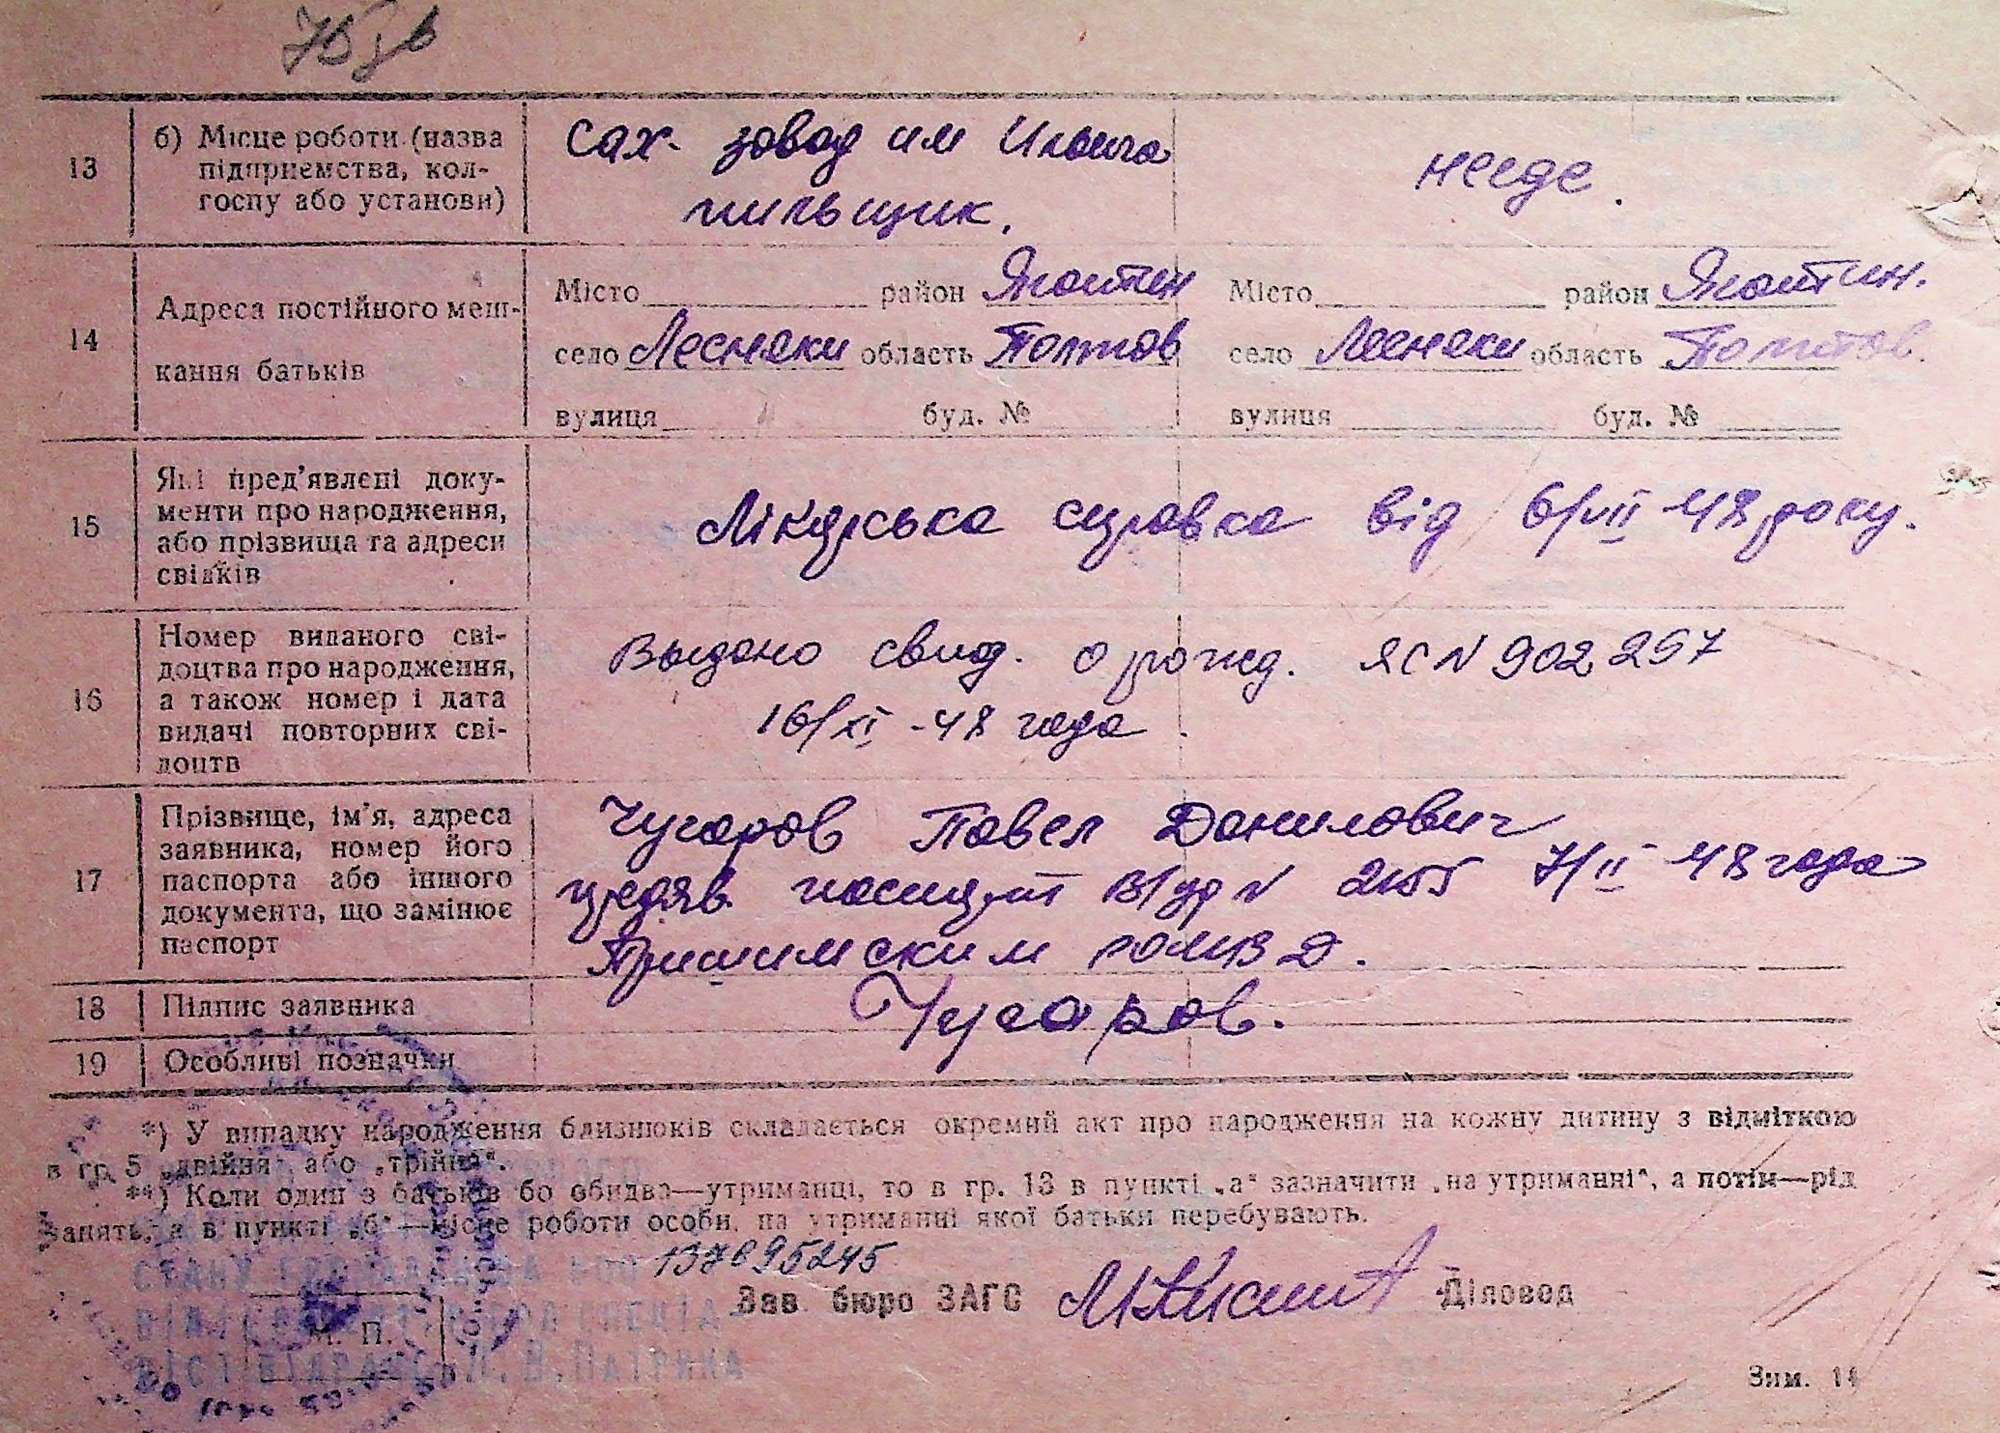 13
б) Місце роботи (назва
підприємства, кол-
госпу або установи)
Сах. завод им Ильича
пильщик.
нейде.
14
Адреса постійного меш-
кання батьків
Місто район Яготин
село Лесняки область Полтов
вулиця буд. №
Місто район Яготин.
село Лесняки область Полтов.
вулиця буд. №
15
Які пред'явлені доку-
менти про народження,
або прізвища та адреси
свідків
Лікарська справка від 6/VII 48 року.
16
Номер виданого сві-
доцтва про народження,
а також номер і дата
видачі повторних сві-
доцтв
Выдано свид. о рожд. ЯС N 902297
16/XI - 48 года
17
Прізвище, ім'я, адреса
заявника, номер його
паспорта або іншого
документа, що замінює
паспорт
Чугаров Павел Данилович
предяв. паспорт 7/II 48 года
18
Підпис заявника
Чугаров.
19
Особливі позначки
*) У випадку народження близнюків складається окремий акт про народження на кожну дитину з відміткою
в гр. 5 „двійня“ або „трійня“.
**) Коли один з батьків бо обидва—утриманці, то в гр. 13 в пункті „а“ зазначити „на утриманні“, а потім—рід
занять, а в пункті „б“—місце роботи особи, на утриманні якої батьки перебувають.
Зав. бюро ЗАГС Діловод
М. П.
Зим. 14